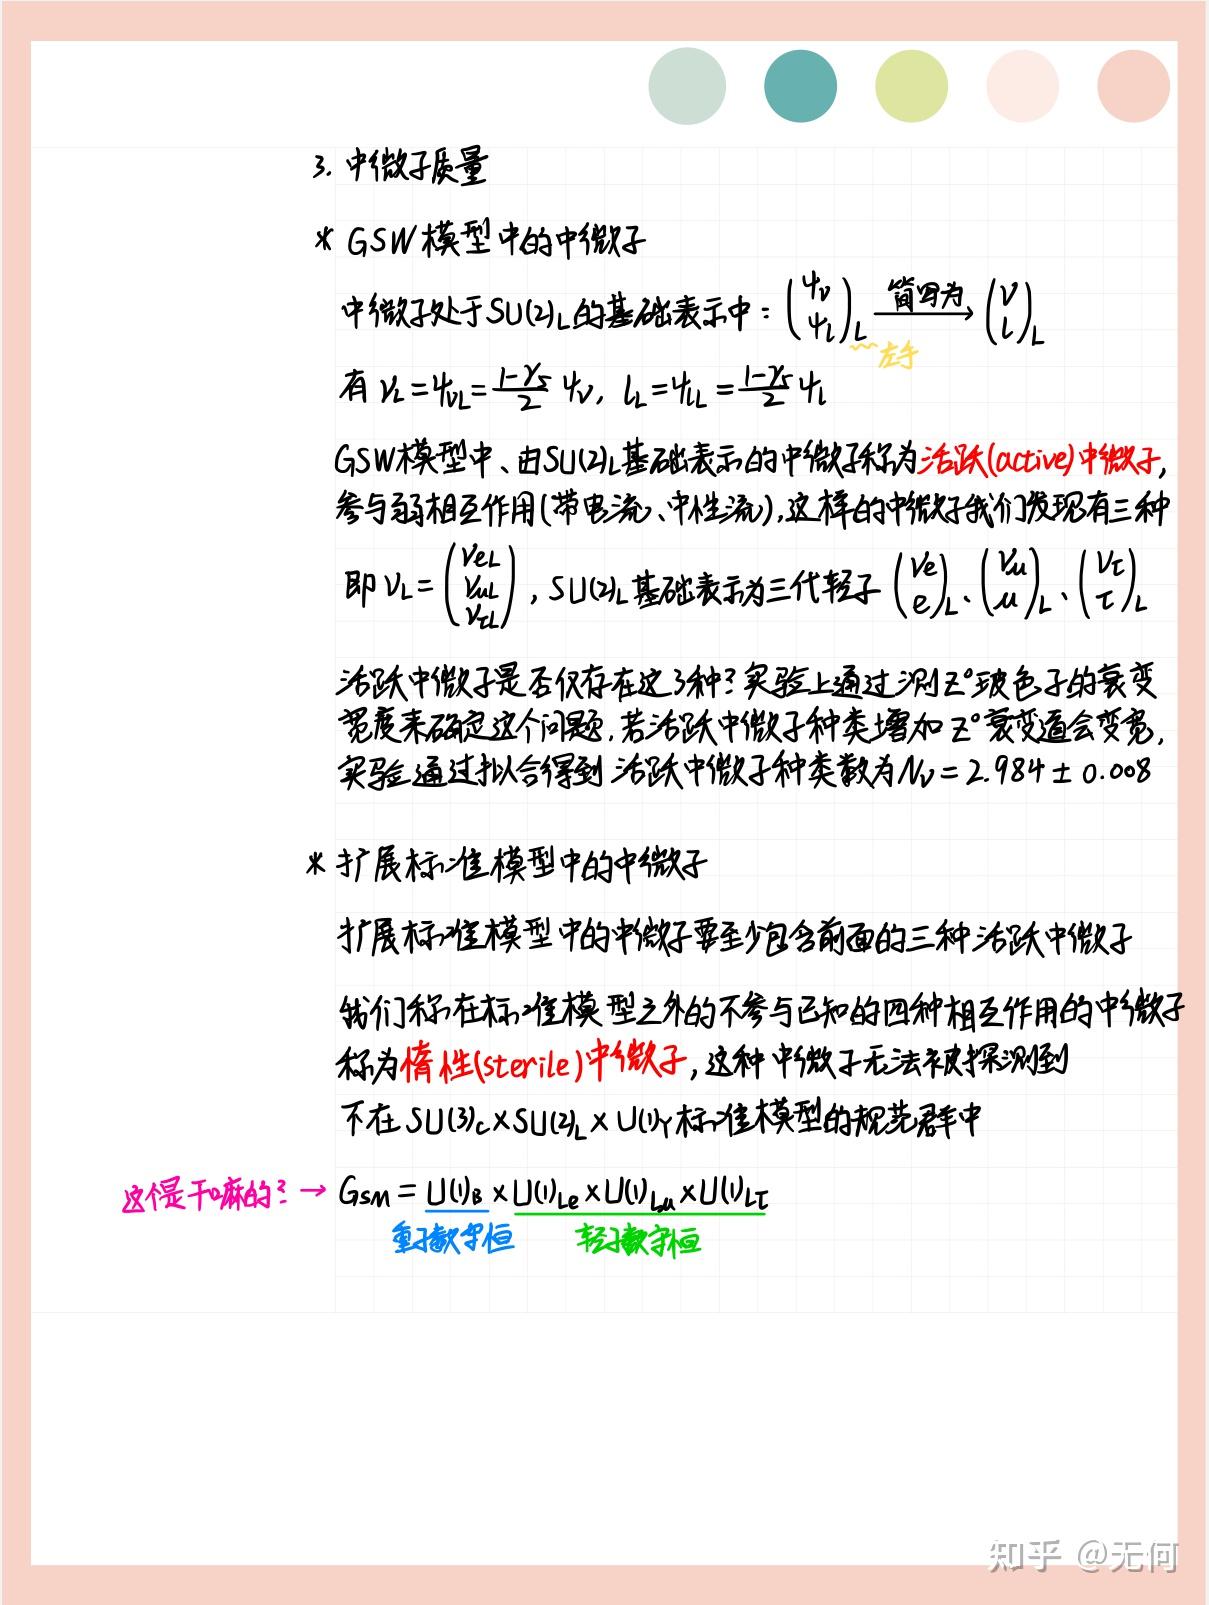 3. 中微子质量
* GSW模型中的中微子
中微子处于SU(2)_L的基础表示中：(ψ_ν ψ_l)_L 简写为→ (ν l)_L
左手
有 ν_L = ψ_νL = (1-γ_5)/2 ψ_ν, l_L = ψ_lL = (1-γ_5)/2 ψ_l
GSW模型中、由SU(2)_L基础表示的中微子称为活跃(active)中微子,
参与弱相互作用(带电流、中性流),这样的中微子我们发现有三种
即 ν_L = (ν_eL ν_μL ν_τL), SU(2)_L基础表示为三代轻子 (ν_e e)_L、(ν_μ μ)_L、(ν_τ τ)_L
活跃中微子是否仅存在这3种? 实验上通过测Z⁰玻色子的衰变
宽度来确定这个问题.若活跃中微子种类增加 Z⁰衰变道会变宽,
实验通过拟合得到 活跃中微子种类数为N_ν = 2.984 ± 0.008
* 扩展标准模型中的中微子
扩展标准模型中的中微子要至少包含前面的三种活跃中微子
我们称在标准模型之外的不参与已知的四种相互作用的中微子
称为惰性(sterile)中微子,这种中微子无法被探测到
不在 SU(3)_c × SU(2)_L × U(1)_Y 标准模型的规范群中
这个是干嘛的? → G_SM = U(1)_B × U(1)_Le × U(1)_Lμ × U(1)_Lτ
重子数守恒 轻子数守恒
知乎 @无何